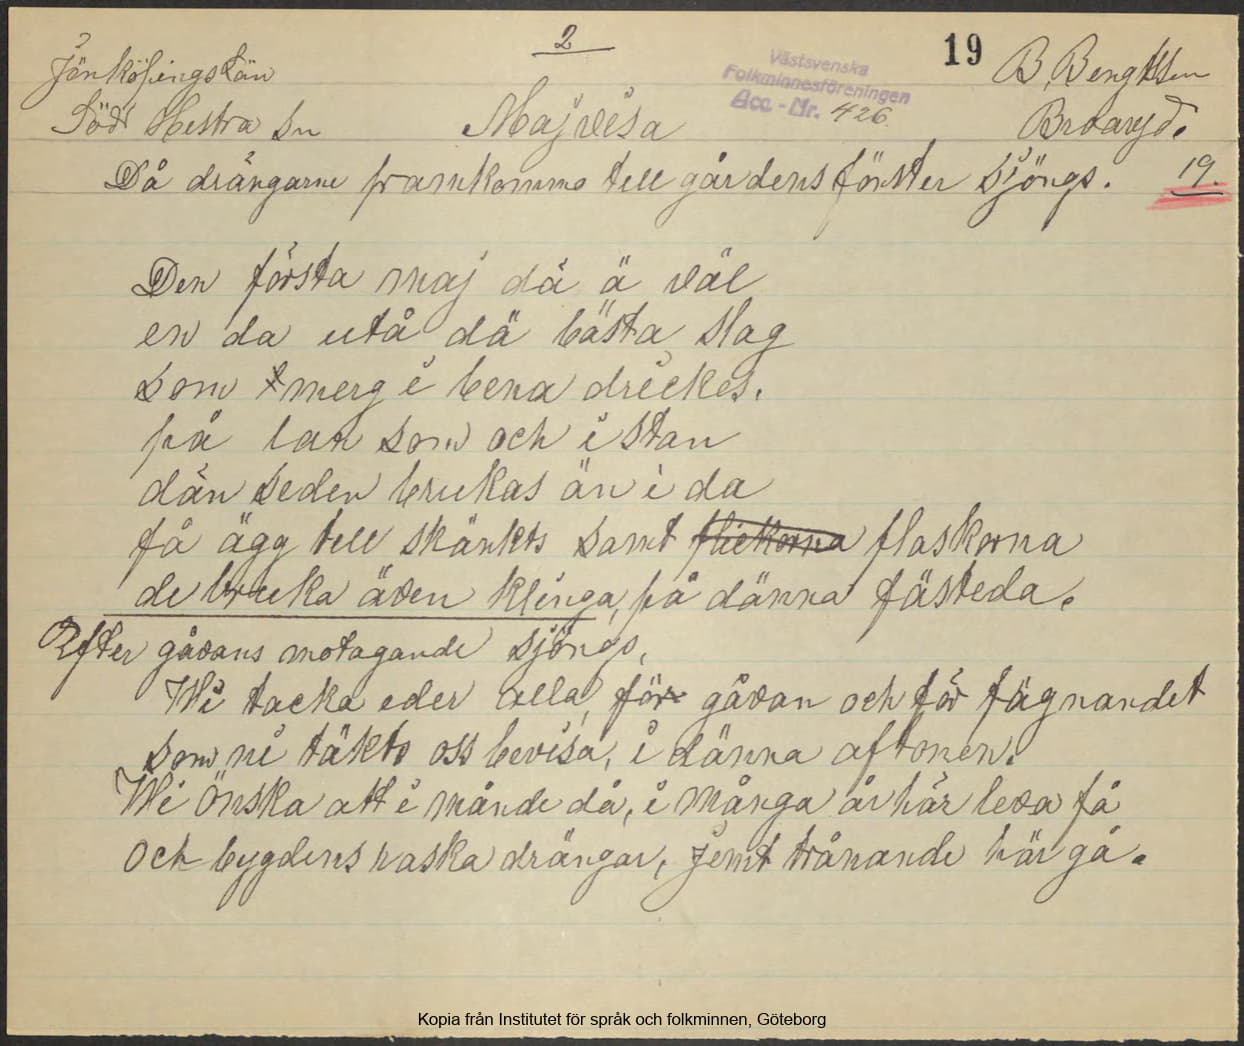 2
19
Jönköpings Län
B. Bengtsson
Västsvenska
Folkminnesföreningen
Acc. - Nr. 426.
Söd Hestra Sn
Majvisa
Broaryd.
Då drängarne framkomma till gårdens fönster sjöngs.
19.
Den första maj dä ä väl
en da utå dä bästa slag
som merg i bena drickes.
på lan som och i stan
dän seden brukas än i da
få ägg till skänkts samt flickorna flaskorna
de bruka även klinga, på dänna fästeda.
Efter gåvans motagande sjöngs,
Wi tacka eder alla, för gåvan och för fägnandet
som ni täkts oss bevisa, i dänna aftonen.
Wi Önska att i månde då, i många år här leva få
Och bygdens raska drängar, jemt trånande här gå.
Kopia från Institutet för språk och folkminnen, Göteborg